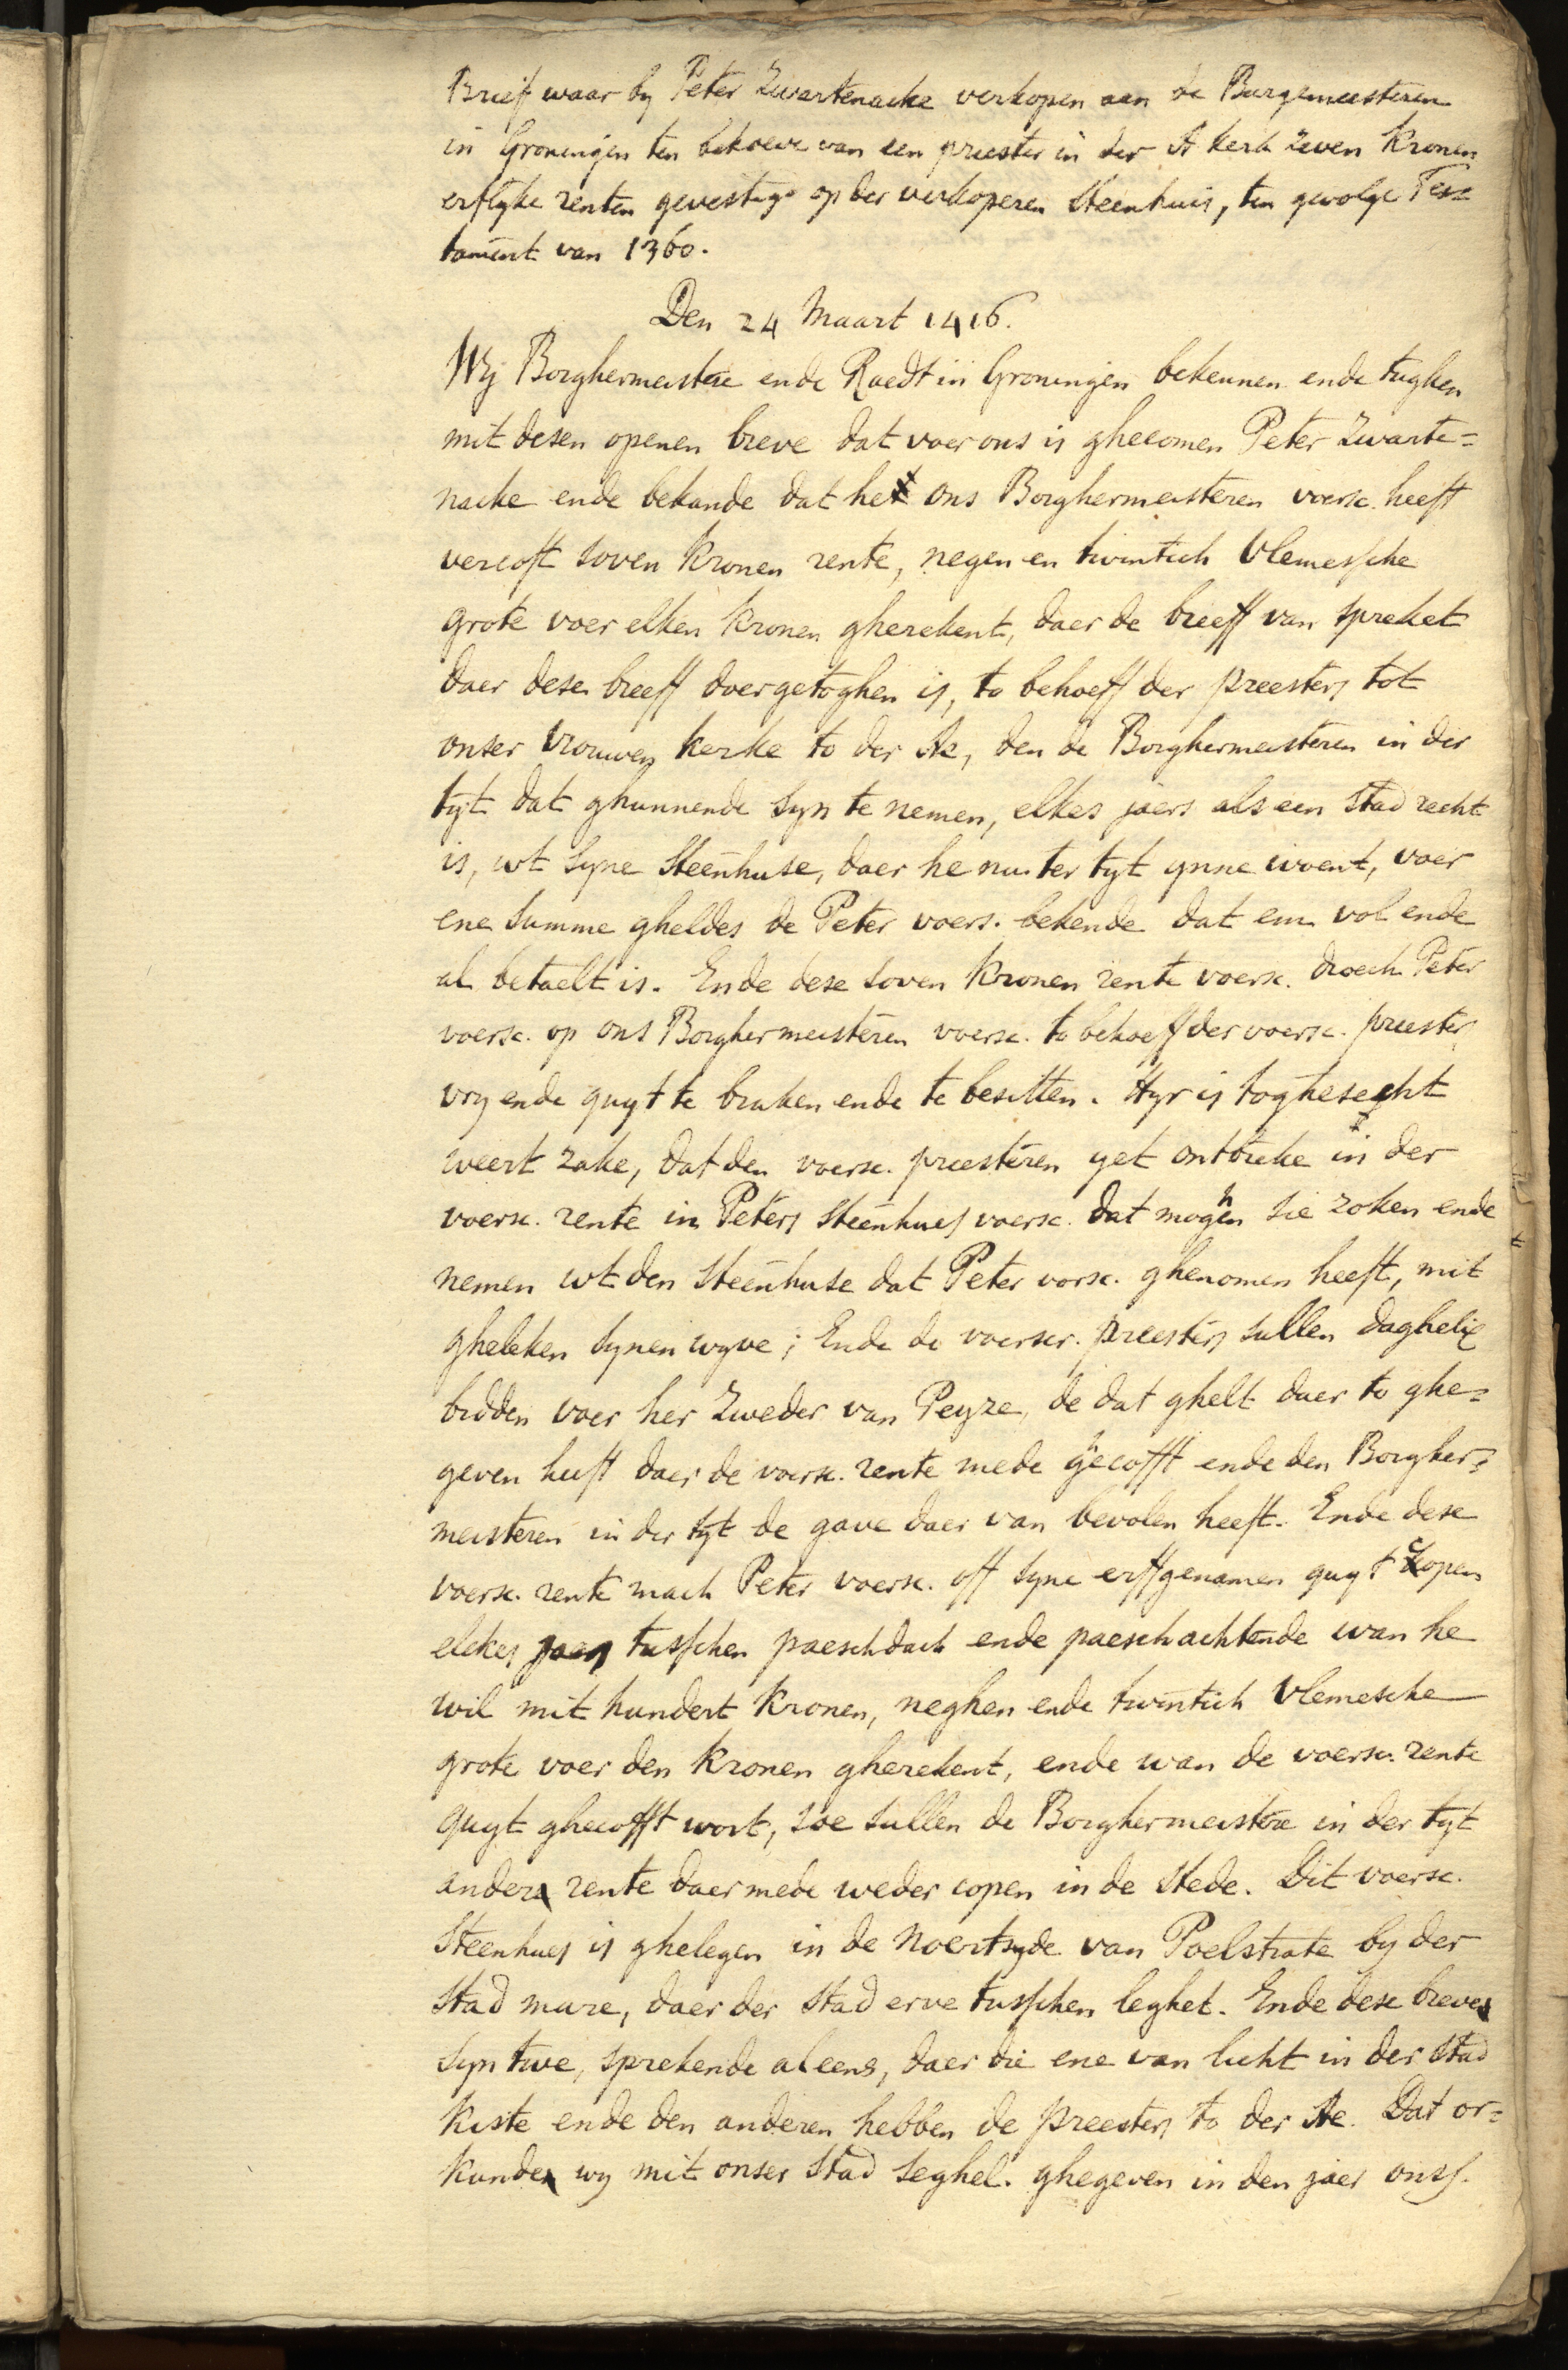 Brief waar by Peter Zwartenacke verkopen aan de Burgemeesteren
in Groningen ten behoeve van een priester in der A kerk zeven Kronen
erflyke renten gevestigd op der verkoperen Steenhuis, ten gevolge Tes=
tament van 1360.
Den 24 Maart 1416.
Wy Borghermeistere ende Raedt in Groningen bekennen ende tughen
mit desen openen breve dat voer ons is ghecomen Peter Zwarte=
nacke ende bekande dat he ons Borghermeisteren voersc. heeft
vercoft soven Kronen rente, negen en twintich Vlemessche
grote voer elken Kronen gherekent, daer de breeff van spreket
daer dese breeff doergetoghen is, to behoeff der preesters tot
onser vrouwen kerke to der Ae, den de Borghermeisteren in der
tyt dat ghunnende syn te nemen, elkes jaers als een Stad recht
is, wt syne Steenhuse, daer he nu ter tyt ynne woent, voer
ene summe gheldes de Peter voers. bekende dat em vol ende
al betaelt is. Ende dese soven Kronen rente voersc. droech Peter
voersc. op ons Borghermeisteren voersc. to behoeff der voersc. preester
vry ende quyt te bruken ende te besitten. Hyr is toghesecht
weert zake, dat den voersc. preesteren yet ontbreke in der
voersc. rente in Peters Steenhues voersc. dat moghen sie zoken ende
nemen wt den Steenhuse dat Peter vorsc. ghenomen heeft, mit
gheleken synen wyve; Ende de voerscr. preesters sullen daghelix
bidden voer her Zweder van Peyze, de dat ghelt daer to ghe=
geven heeft daer de voersc. rente mede ghecofft ende den Borgher=
meisteren in der tyt de gave daer van bevolen heeft. Ende dese
voersc. rente mach Peter voersc. off syne erffgenamen quyt copen
elckes jaers tusschen paeschdach ende paeschachtende wan he
wil mit hundert Kronen, neghen ende twintich Vlemesche
grote voer den Kronen gherekent, ende wan de voersc. rente
quyt ghecofft wort, soe sullen de Borghermeistere in der tyt
ander rente daer mede weder copen in de stede. Dit voersc.
Steenhues is ghelegen in de Noertsyde van Poelstrate by der
Stad mure, daer der Stad erve tusschen leghet. Ende dese breve
syn twe, sprekende aleens, daer die ene van licht in der Stad
Kiste ende den anderen hebben de preesters to der Ae. Dat or=
kunde wy mit onser Stad Seghel. ghegeven in den jaer onss.